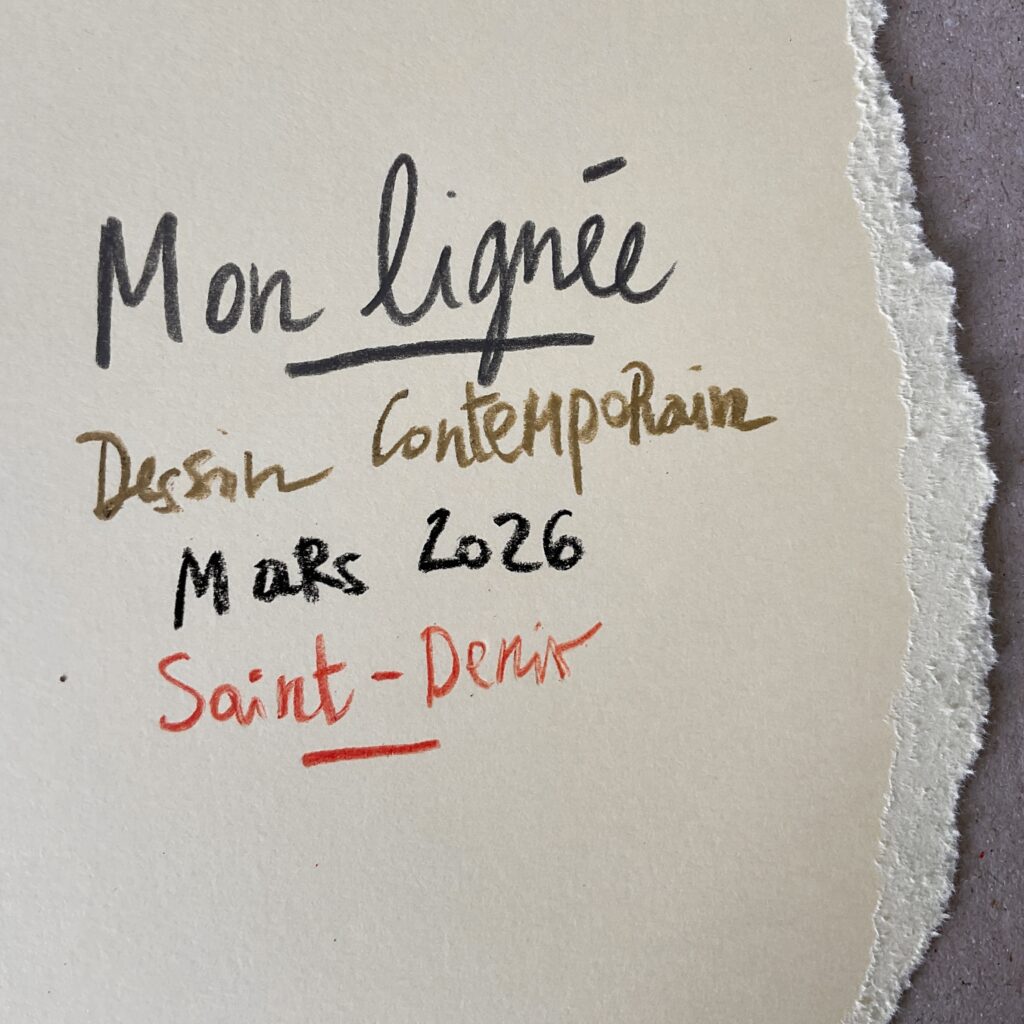 Mon lignée
Dessin ContempoRain
MaRs 2026
Saint-Denis